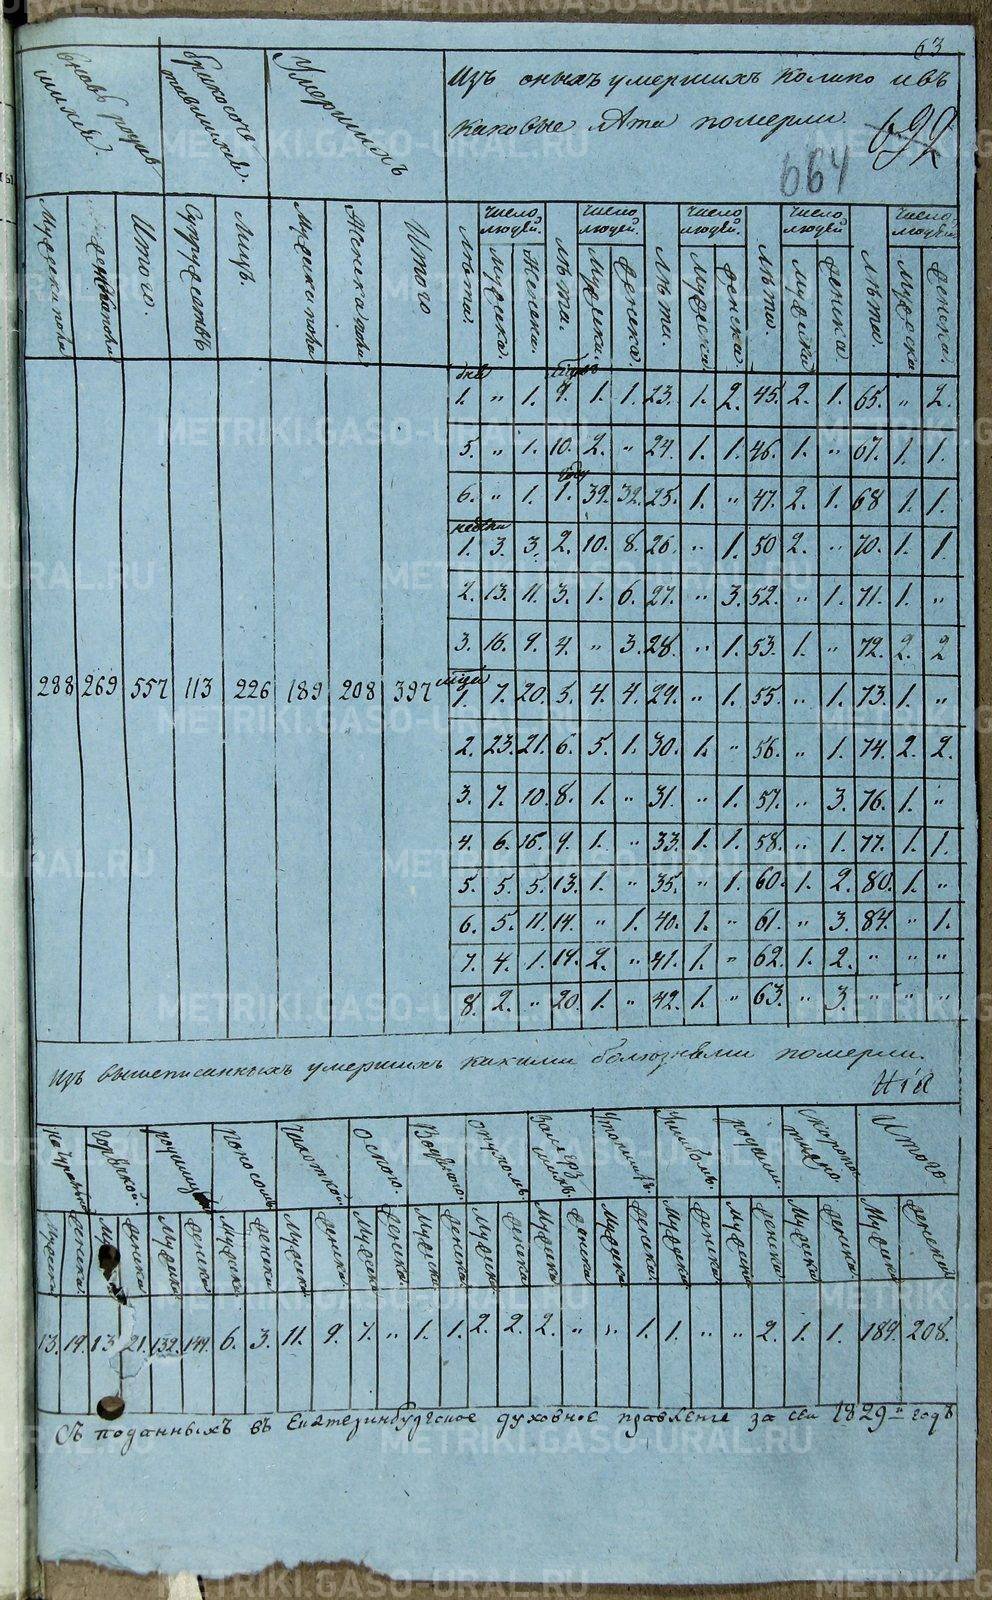 63
Вновь родив
шихся.
бракосоче
тавшихся.
Умершихъ
Изъ оныхъ умершихъ колико и въ
каковые лѣта померли.
692
664
Мужеска пола
женска пола
Итого.
Супружествъ
Лицъ.
Мужеска пола
Женска пола
Итого
Лѣта. число людей. Мужеска. Женска.
Лѣта. число людей. Мужеска. Женска.
Лѣта. число людей. Мужеска. Женска.
Лѣта. число людей. Мужеска Женска.
Лѣта. число людей. Мужеска Женска.
дня
1. „ 1. 9. 1. 1. 23. 1. 2. 45. 2. 1. 65. „ 2.
5. „ 1. 10. 2. „ 24. 1. 1. 46. 1. „ 67. 1. 1.
году
6. „ 1. 1. 39. 32. 25. 1. „ 47. 2. 1. 68 1. 1.
недели
1. 3. 3. 2. 10. 8. 26. „ 1. 50 2. „ 70. 1. 1.
2. 13. 11. 3. 1. 6. 27. „ 3. 52. „ 1. 71. 1. „
3. 16. 9. 4. „ 3. 28. „ 1. 53. 1. „ 72. 2. 2
288 269 557 113 226 189 208 397
мцъ
1. 7. 20. 5. 4. 4. 29. „ 1. 55. „ 1. 73. 1. „
2. 23. 21. 6. 5. 1. 30. 1. „ 56. „ 1. 74. 2. 2.
3. 7. 10. 8. 1. „ 31. „ 1. 57. „ 3. 76. 1. „
4. 6. 15. 9. 1. „ 33. 1. 1. 58. „ 1. 77. 1. 1.
5. 5. 5. 13. 1. „ 35. „ 1. 60. 1. 2. 80. 1. „
6. 5. 11. 14. „ 1. 40. 1. „ 61. „ 3. 84. „ 1.
7. 4. 1. 19. 2. „ 41. 1. „ 62. 1. 2. „ „ „
8. 2. „ 20. 1. „ 42. 1. „ 63. „ 3. „ „ „
Изъ вышеписанныхъ умершихъ какими болюзнями померли.
горячкой.
родимцомъ
поносомъ
Чахоткой.
Оспою.
Водяною.
Опухомъ.
родами.
Скоропос
тижно.
Итого
Мужеска женска.
13. 19. 13 21. 132. 144. 6. 3. 11. 9. 7. „ 1. 1. 2. 2. 2. „ „ 1. 1. „ „ 2. 1. 1. 189. 208.
Съ поданныхъ въ Екатеринбургское духовное правленіе за сеи 1829й годъ
METRIKI.GASO-URAL.RU